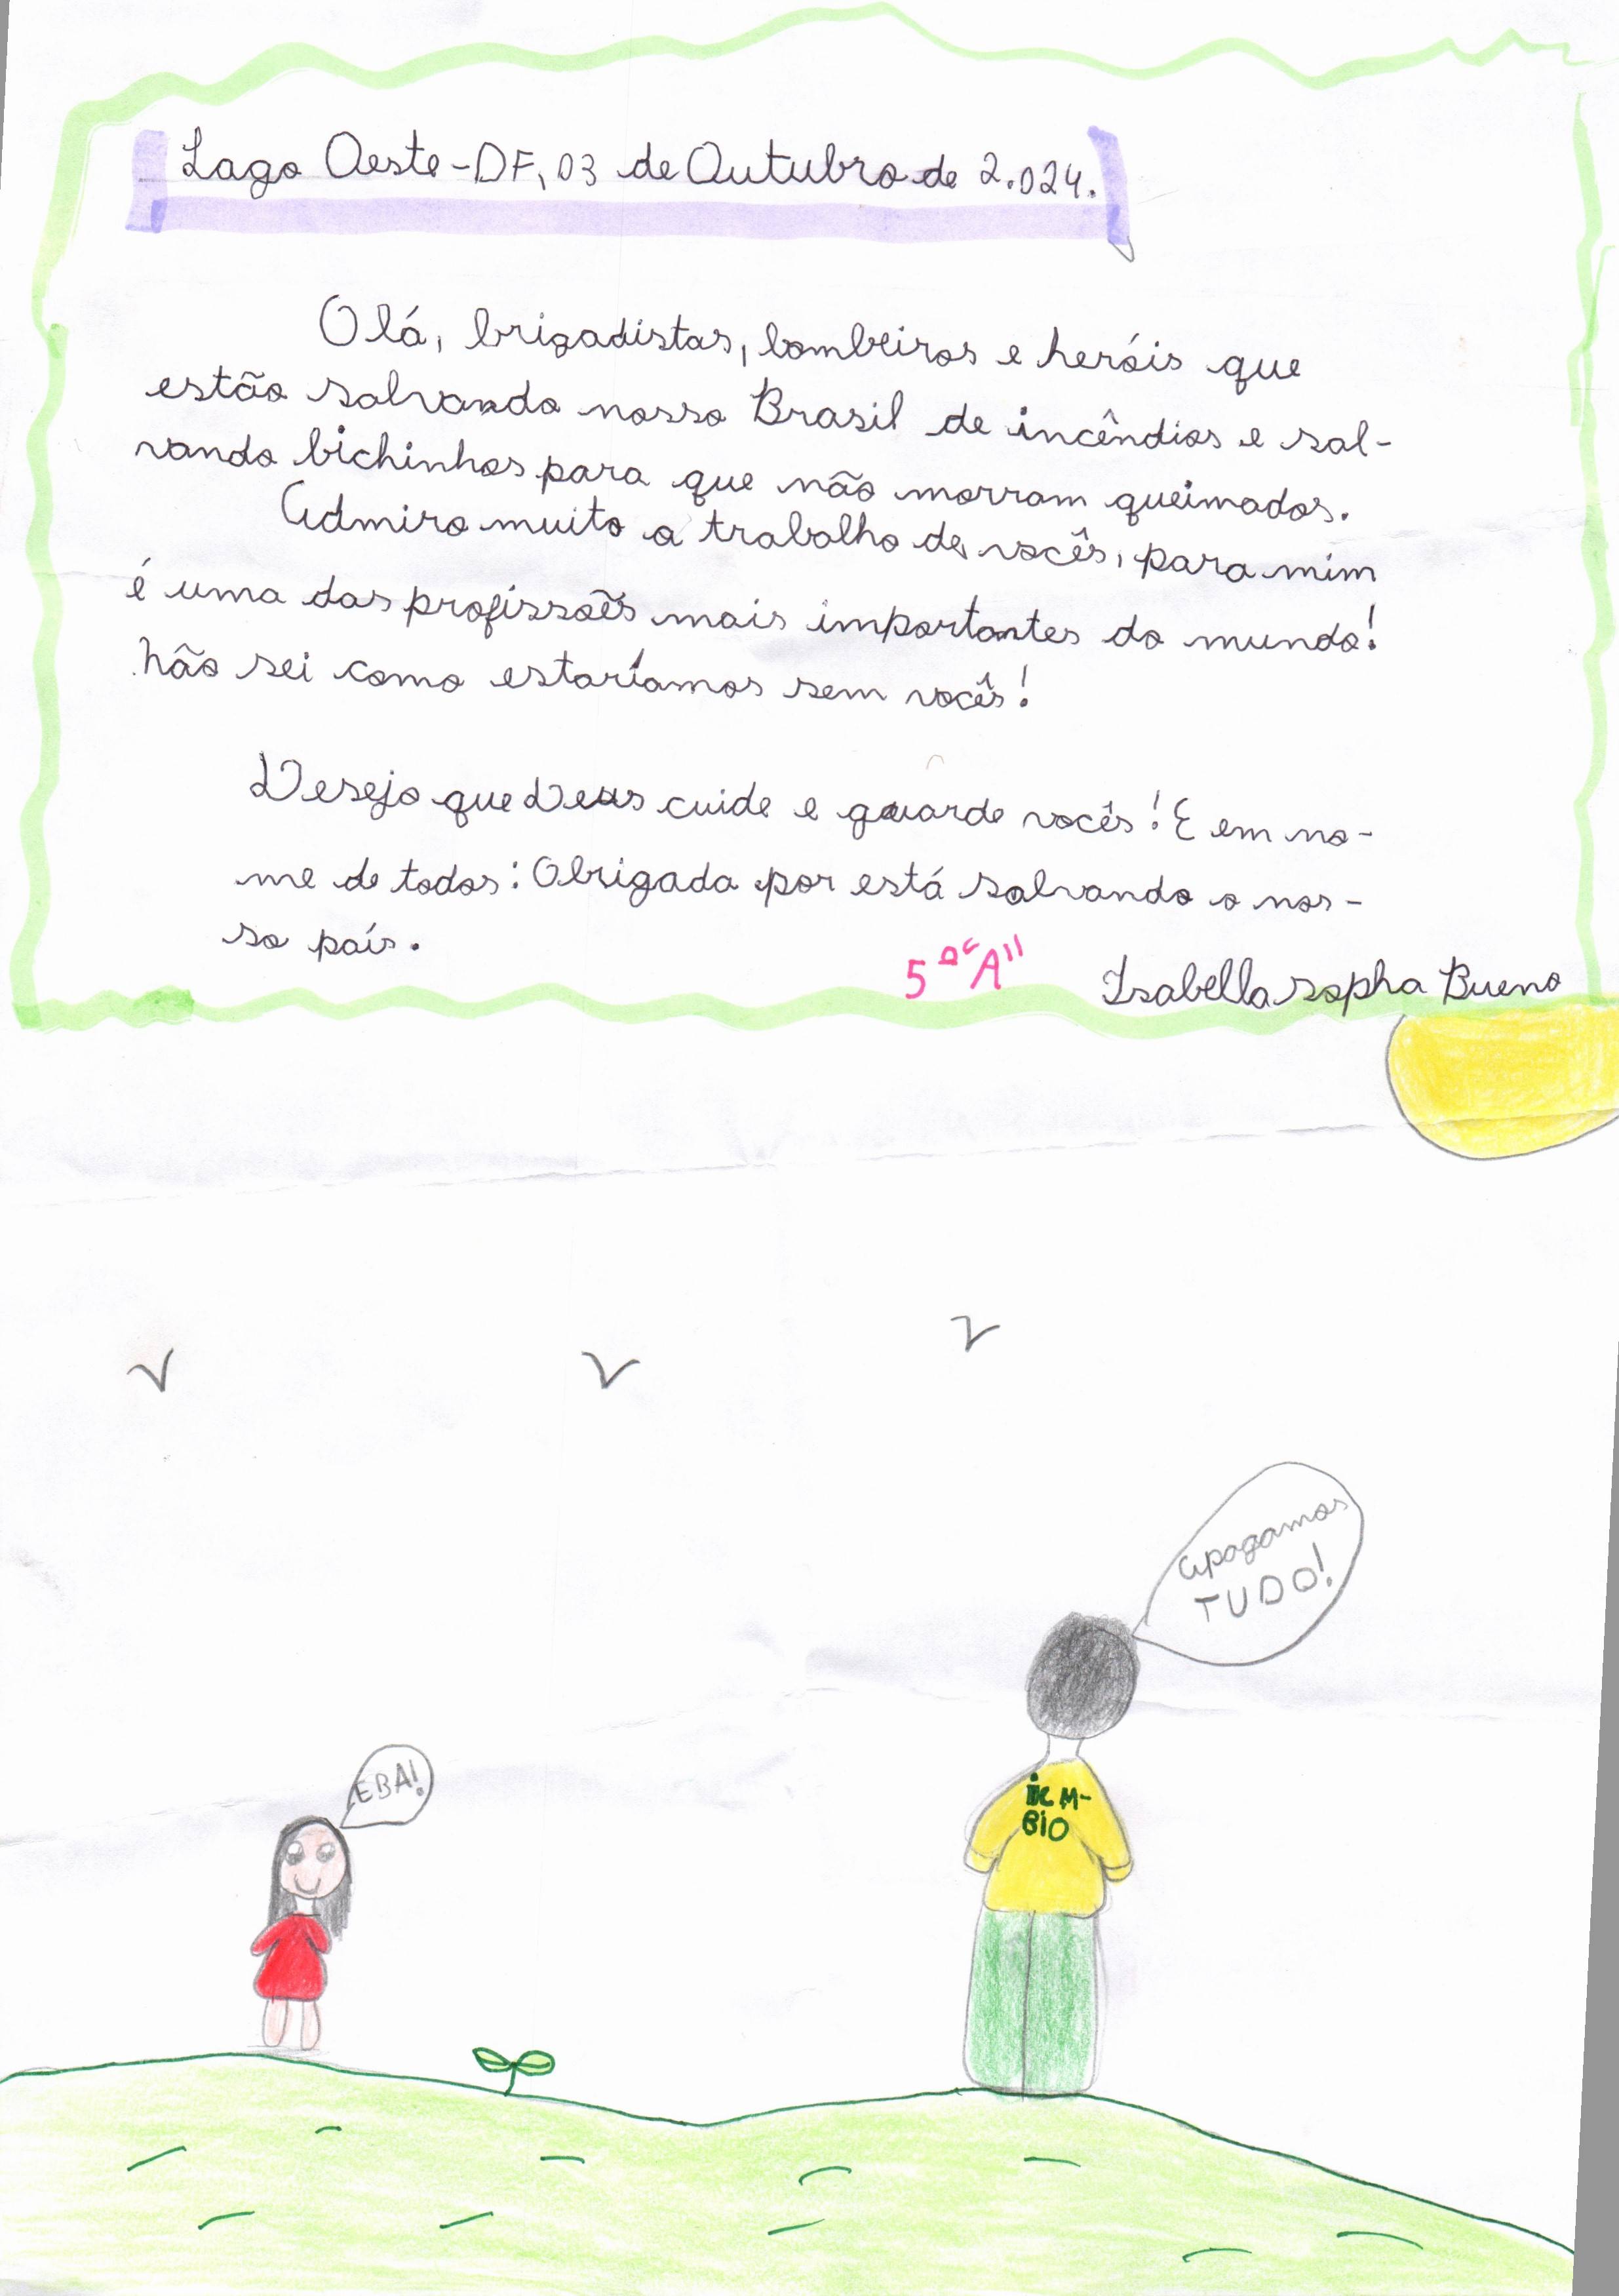 Lago Oeste-DF, 03 de Outubro de 2.024.
Olá, brigadistas, bombeiros e heróis que
estão salvando nosso Brasil de incêndios e sal-
vando bichinhos para que não morram queimados.
Admiro muito o trabalho de vocês, para mim
é uma das profissões mais importantes do mundo!
Não sei como estaríamos sem vocês!
Desejo que Deus cuide e guarde vocês! E em no-
me de todos: Obrigada por está salvando o nos-
so país.
5º "A"
Isabella sopha Bueno
Apagamos
TUDO!
EBA!
icm-
BIO